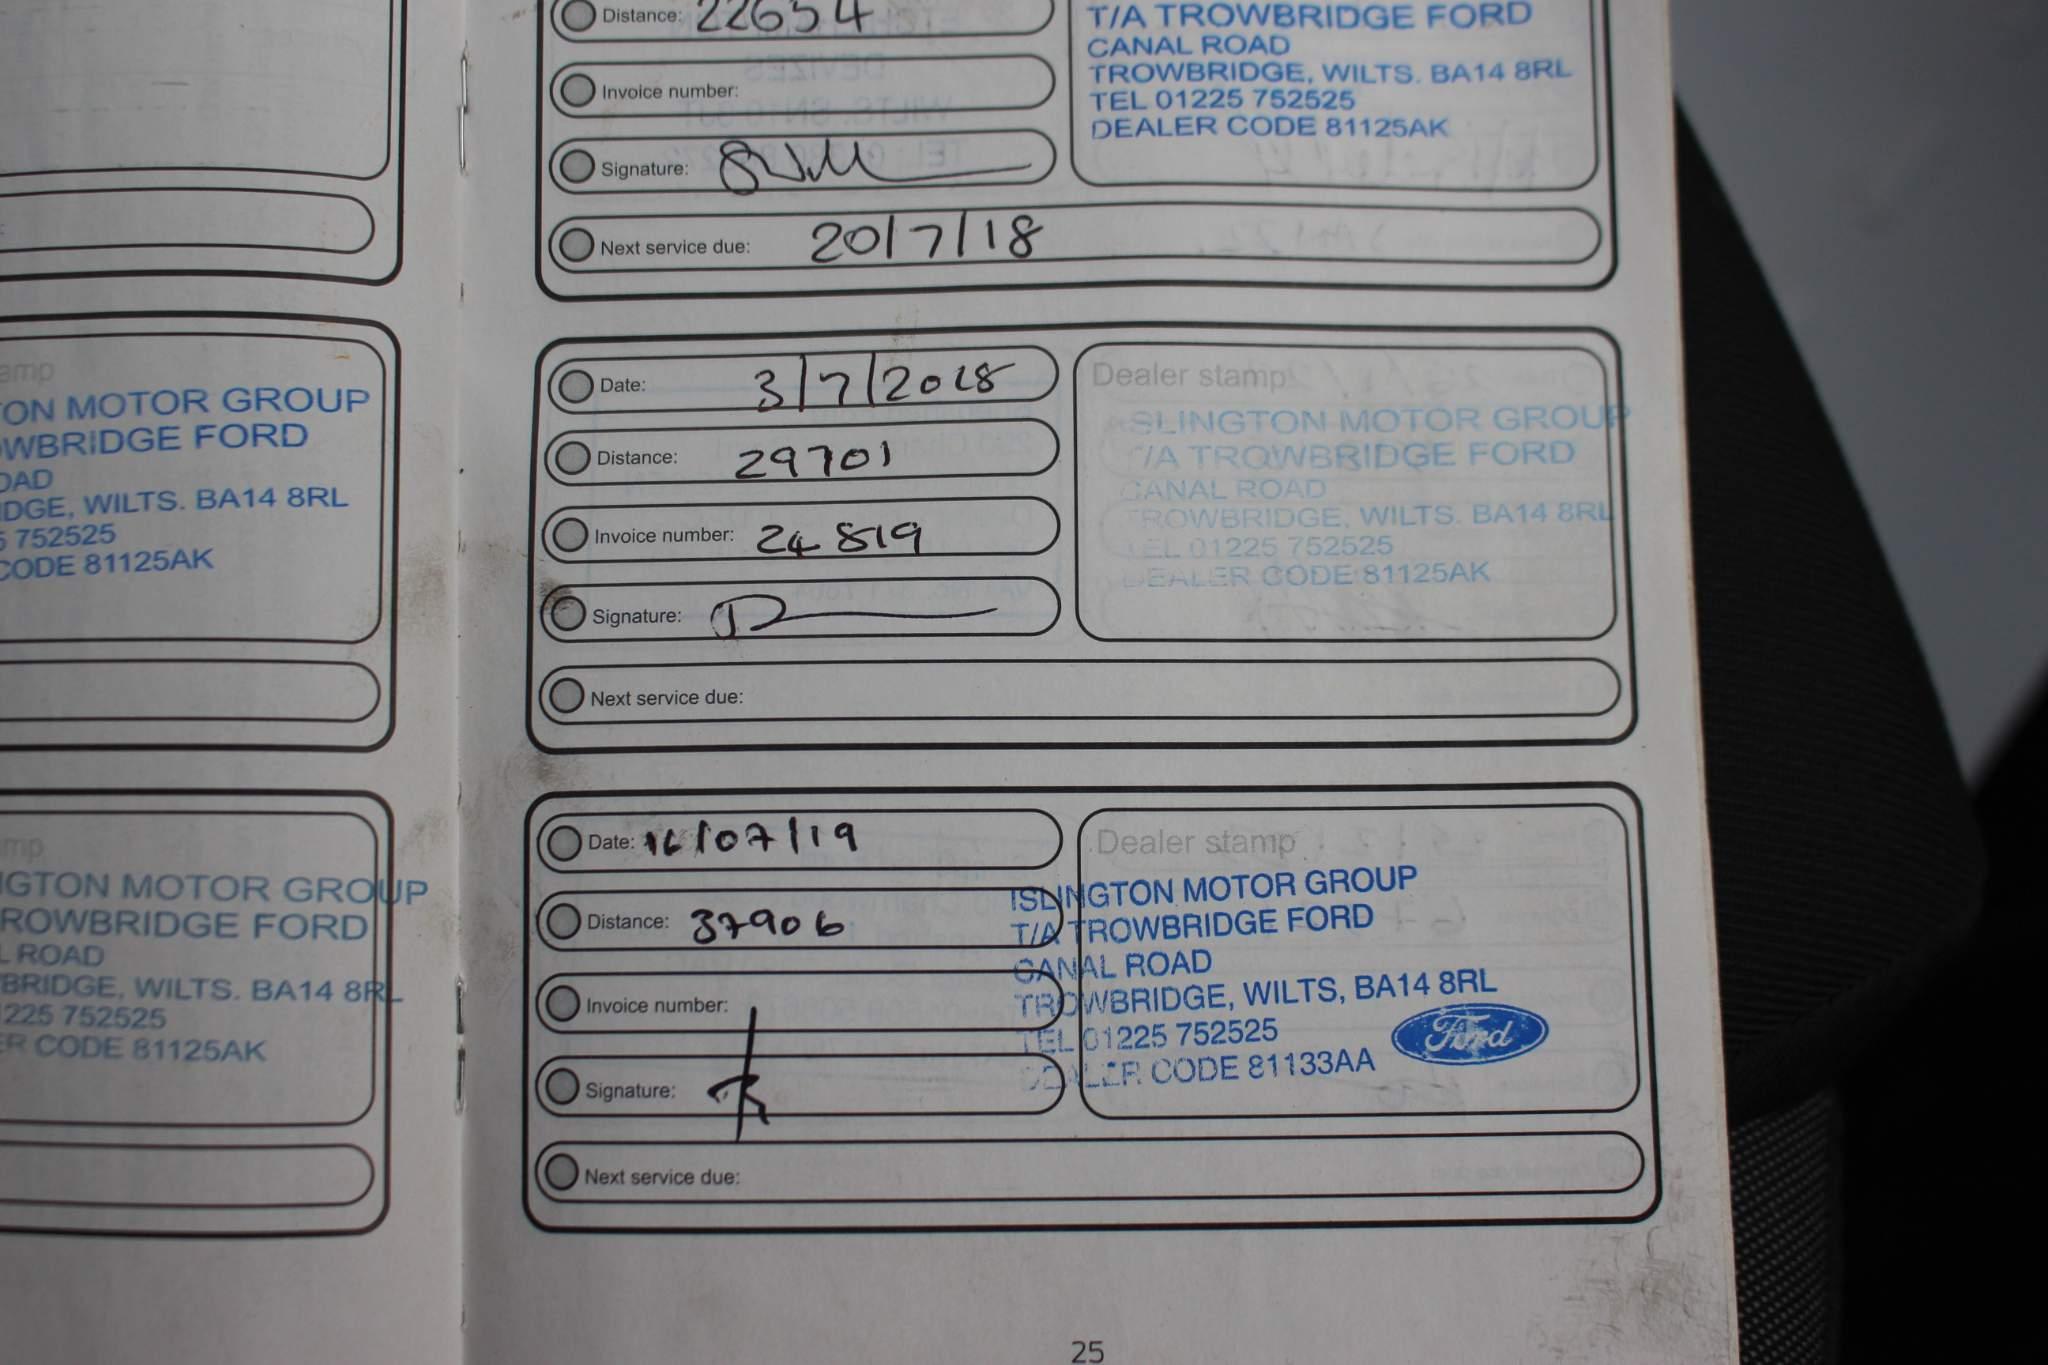 amp
TON MOTOR GROUP
OWBRIDGE FORD
OAD
IDGE, WILTS. BA14 8RL
5 752525
CODE 81125AK
mp
IGTON MOTOR GROUP
ROWBRIDGE FORD
L ROAD
BRIDGE, WILTS. BA14 8RL
1225 752525
ER CODE 81125AK
Distance: 22654
Invoice number:
Signature:
T/A TROWBRIDGE FORD
CANAL ROAD
TROWBRIDGE, WILTS. BA14 8RL
TEL 01225 752525
DEALER CODE 81125AK
Next service due: 20/7/18
Date: 3/7/2018
Distance: 29701
Invoice number: 24819
Signature:
Dealer stamp
ISLINGTON MOTOR GROUP
T/A TROWBRIDGE FORD
CANAL ROAD
TROWBRIDGE, WILTS. BA14 8RL
TEL 01225 752525
DEALER CODE 81125AK
Next service due:
Date: 16/07/19
Distance: 37906
Invoice number:
Signature:
Dealer stamp
ISLINGTON MOTOR GROUP
T/A TROWBRIDGE FORD
CANAL ROAD
TROWBRIDGE, WILTS, BA14 8RL
TEL 01225 752525
DEALER CODE 81133AA
Ford
Next service due:
25